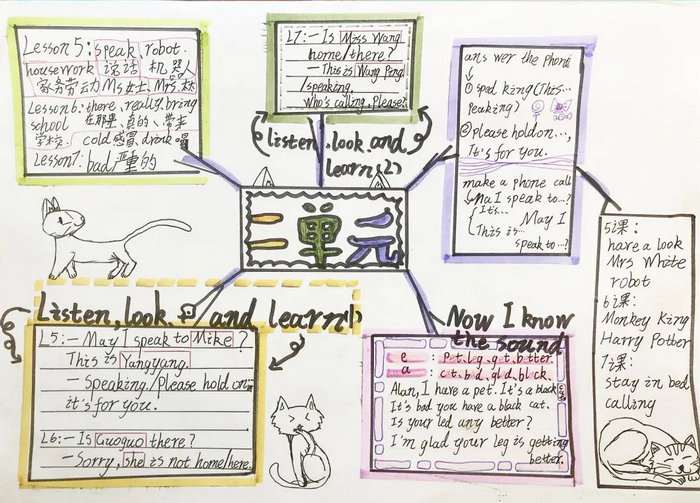 Lesson 5: speak, robot.
housework 说话 机器人
家务劳动 Ms女士、Mrs.太
Lesson 6: there, really, bring
在那里、真的、带来
school
学校、cold感冒、drink喝
Lesson 7: bad/严重的
L7: - Is Miss Wang
home/there?
- This is Wang Ping
/speaking.
Who's calling, please?
Listen, look and
learn(2)
answer the phone
↓
① spad king(This...
peaking)
② please hold on...,
It's for you.
make a phone call
Ma I speak to...?
It's...
May I
This is...
speak to...?
二单元
5课:
have a look
Mrs White
robot
6课:
Monkey King
Harry Potter
7课:
stay in bed
calling
Listen, look and learn(1)
L5: - May I speak to Mike?
This is Yangyang.
- Speaking/Please hold on
it's for you.
L6: - Is Guoguo there?
- Sorry, she is not home/here.
Now I know
the sound
e : p_t. l_g. g_t. b_tter.
a : c_t. b_d. gl_d. bl_ck.
Alan, I have a pet. It's a black
It's bad you have a black cat.
Is your led any better?
I'm glad your leg is getting
better.